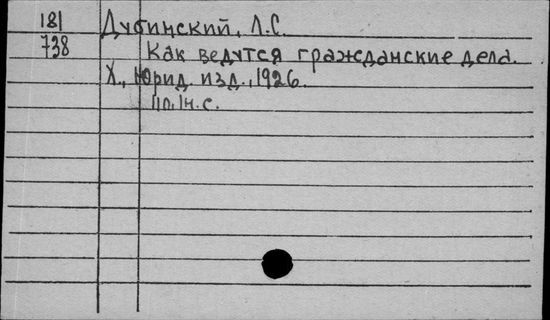 181 Дубинский, Л.С.
738 Как ведутся гражданские дела.
Х., Юрид. изд., 1926.